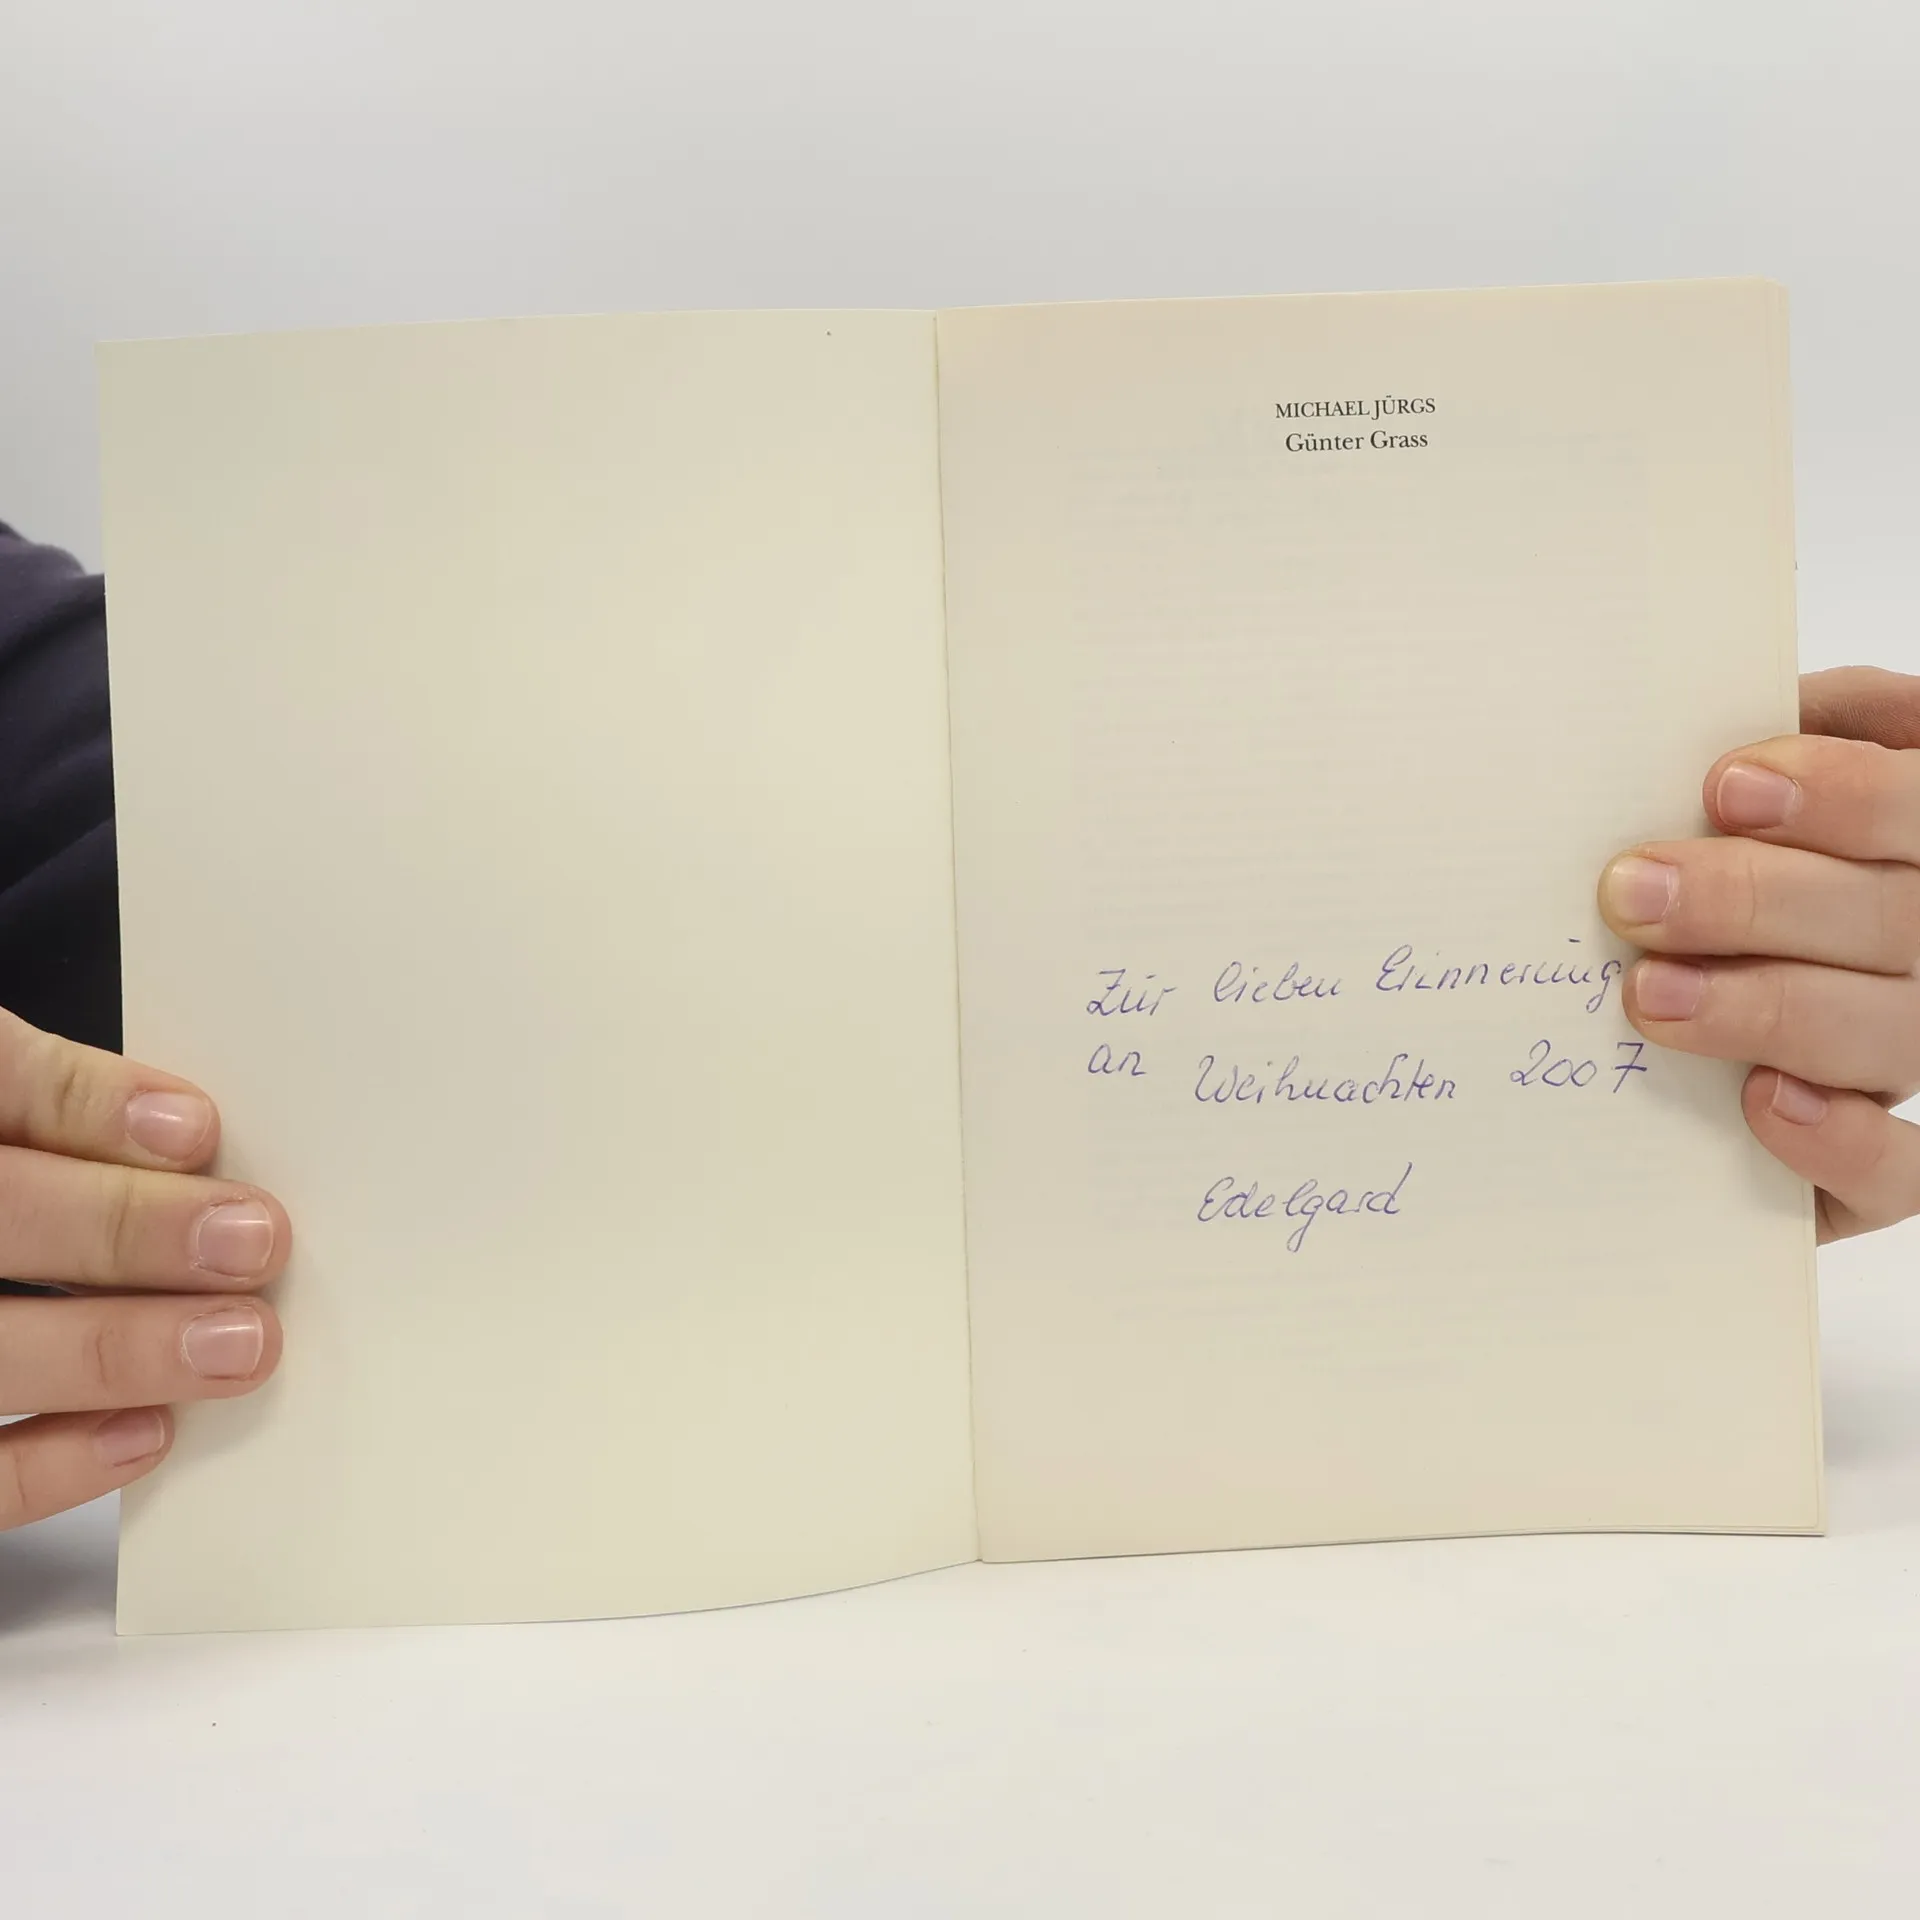 MICHAEL JÜRGS
Günter Grass
Zur lieben Erinnerung
an Weihnachten 2007
Edelgard